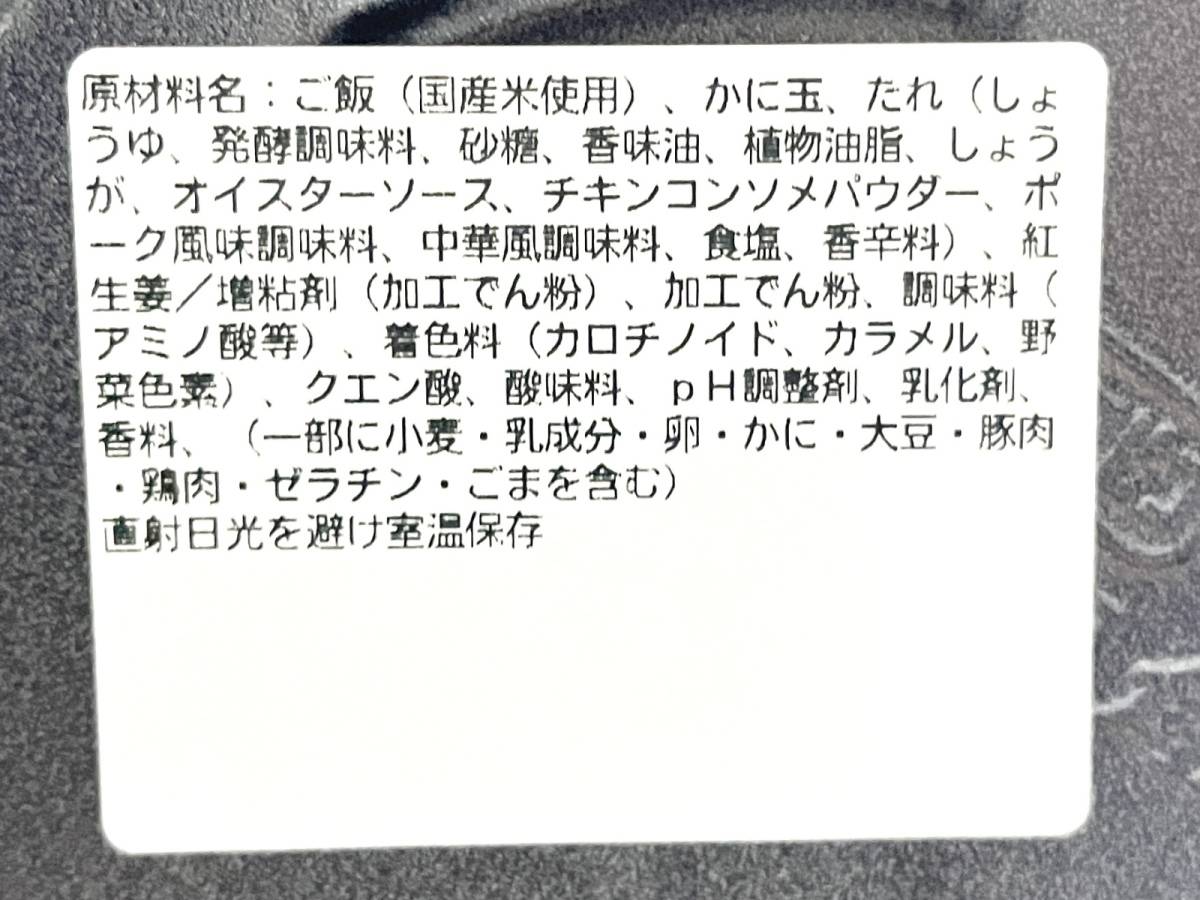 原材料名：ご飯（国産米使用）、かに玉、たれ（しょ
うゆ、発酵調味料、砂糖、香味油、植物油脂、しょう
が、オイスターソース、チキンコンソメパウダー、ポ
ーク風味調味料、中華風調味料、食塩、香辛料）、紅
生姜／増粘剤（加工でん粉）、加工でん粉、調味料（
アミノ酸等）、着色料（カロチノイド、カラメル、野
菜色素）、クエン酸、酸味料、ｐＨ調整剤、乳化剤、
香料、（一部に小麦・乳成分・卵・かに・大豆・豚肉
・鶏肉・ゼラチン・ごまを含む）
直射日光を避け室温保存